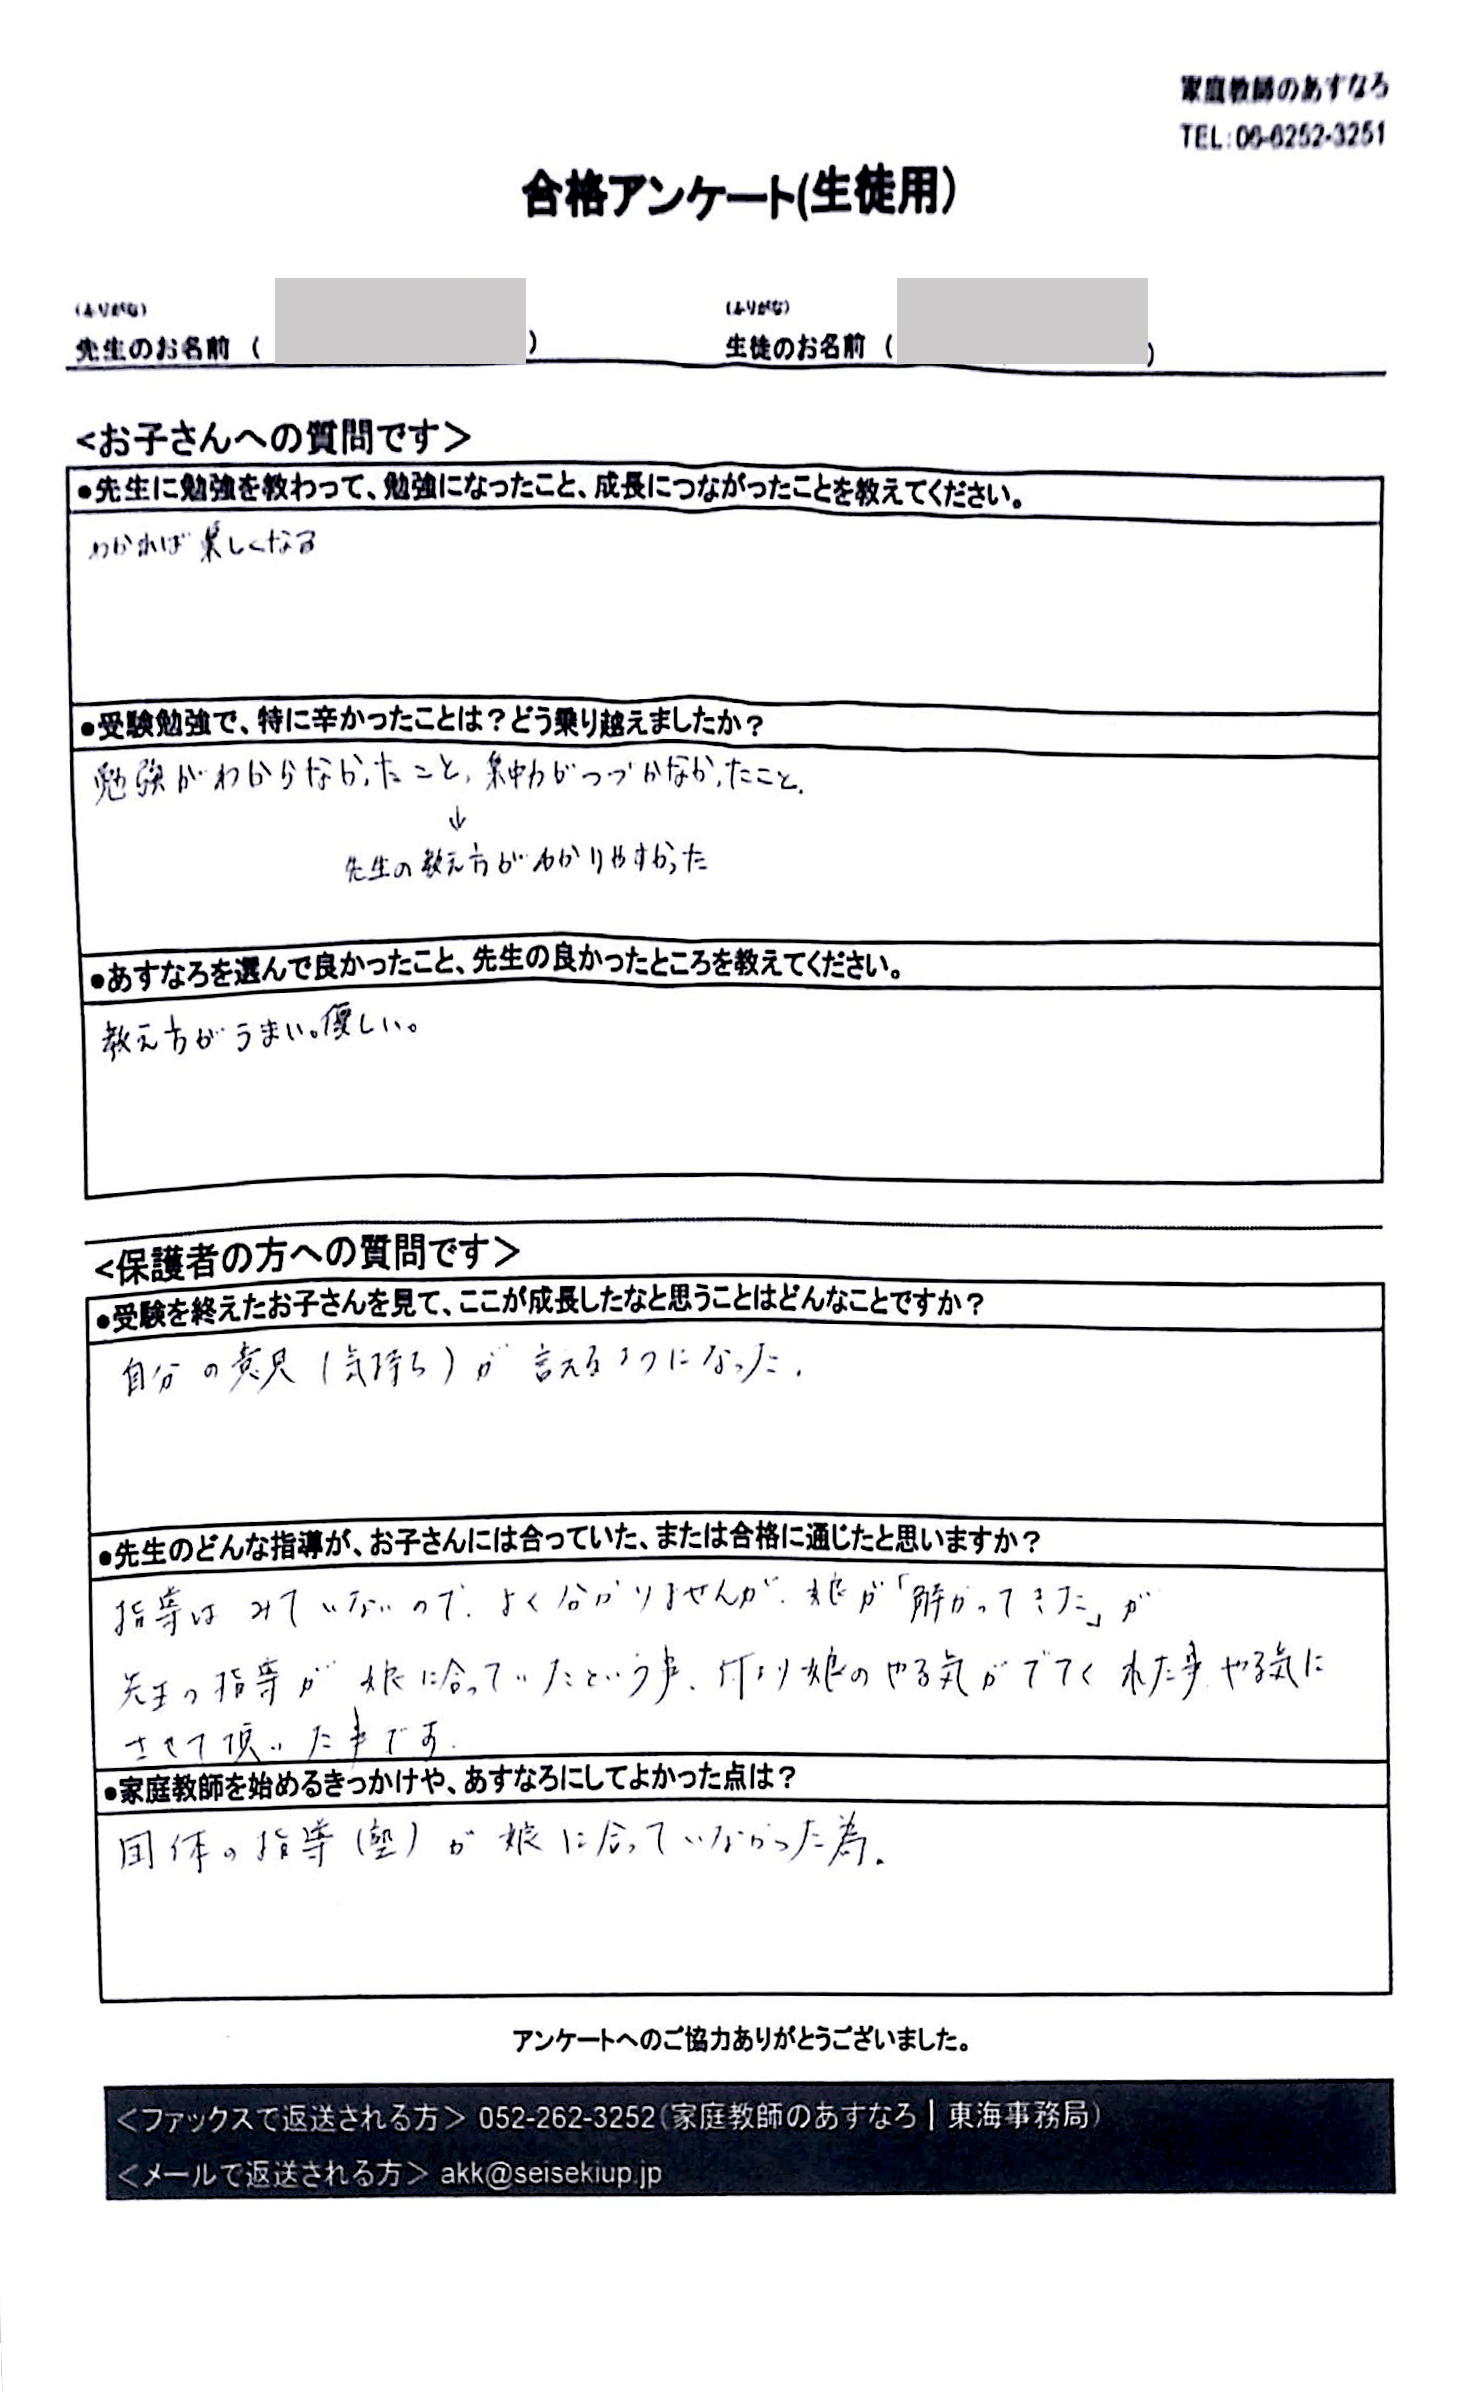 家庭教師のあすなろ
TEL:06-6252-3251
合格アンケート(生徒用)
(ふりがな)
先生のお名前 ( )
(ふりがな)
生徒のお名前 ( )
<お子さんへの質問です>
●先生に勉強を教わって、勉強になったこと、成長につながったことを教えてください。
わかれば楽しくなる
●受験勉強で、特に辛かったことは？どう乗り越えましたか？
勉強がわからなかったこと、集中力がつづかなかったこと。
↓
先生の教え方がわかりやすかった
●あすなろを選んで良かったこと、先生の良かったところを教えてください。
教え方がうまい。優しい。
<保護者の方への質問です>
●受験を終えたお子さんを見て、ここが成長したなと思うことはどんなことですか？
自分の意見(気持ち)が言えるようになった。
●先生のどんな指導が、お子さんには合っていた、または合格に通じたと思いますか？
指導はみていないので、よく分かりませんが、娘が「解かってきた」が
先生の指導が娘に合っていたという事、何より娘のやる気がでてくれた事、やる気に
させて頂いた事です。
●家庭教師を始めるきっかけや、あすなろにしてよかった点は？
団体の指導(塾)が娘に合っていなかった為。
アンケートへのご協力ありがとうございました。
<ファックスで返送される方> 052-262-3252(家庭教師のあすなろ|東海事務局)
<メールで返送される方> akk@seisekiup.jp